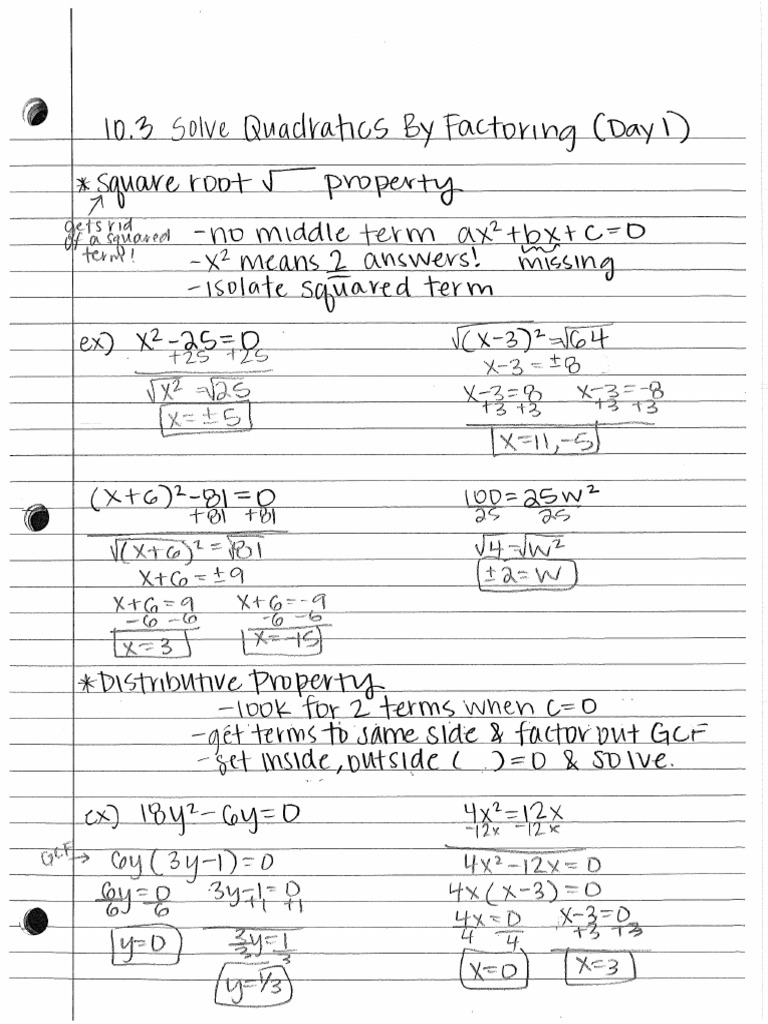 10.3 Solve Quadratics By Factoring (Day 1)
*square root √ property
gets rid
of a squared
term!
-no middle term ax²+bx+c=0
-x² means 2 answers! missing
-isolate squared term
ex) x²-25=0
+25 +25
√x² =√25
x=±5
√(x-3)²=√64
x-3=±8
x-3=8 x-3=-8
+3 +3 +3 +3
x=11,-5
(x+6)²-81=0
+81 +81
√(x+6)²=√81
x+6=±9
x+6=9 x+6=-9
-6 -6 -6 -6
x=3 x=-15
100=25w²
25 25
√4=√w²
±2=w
*Distributive Property
-look for 2 terms when c=0
-get terms to same side & factor out GCF
-set inside, outside ( )=0 & solve.
ex) 18y²-6y=0
GCF→ 6y(3y-1)=0
6y=0 3y-1=0
6 6 +1 +1
y=0 3y=1
3 3
y=1/3
4x²=12x
-12x -12x
4x²-12x=0
4x(x-3)=0
4x=0 x-3=0
4 4 +3 +3
x=0 x=3